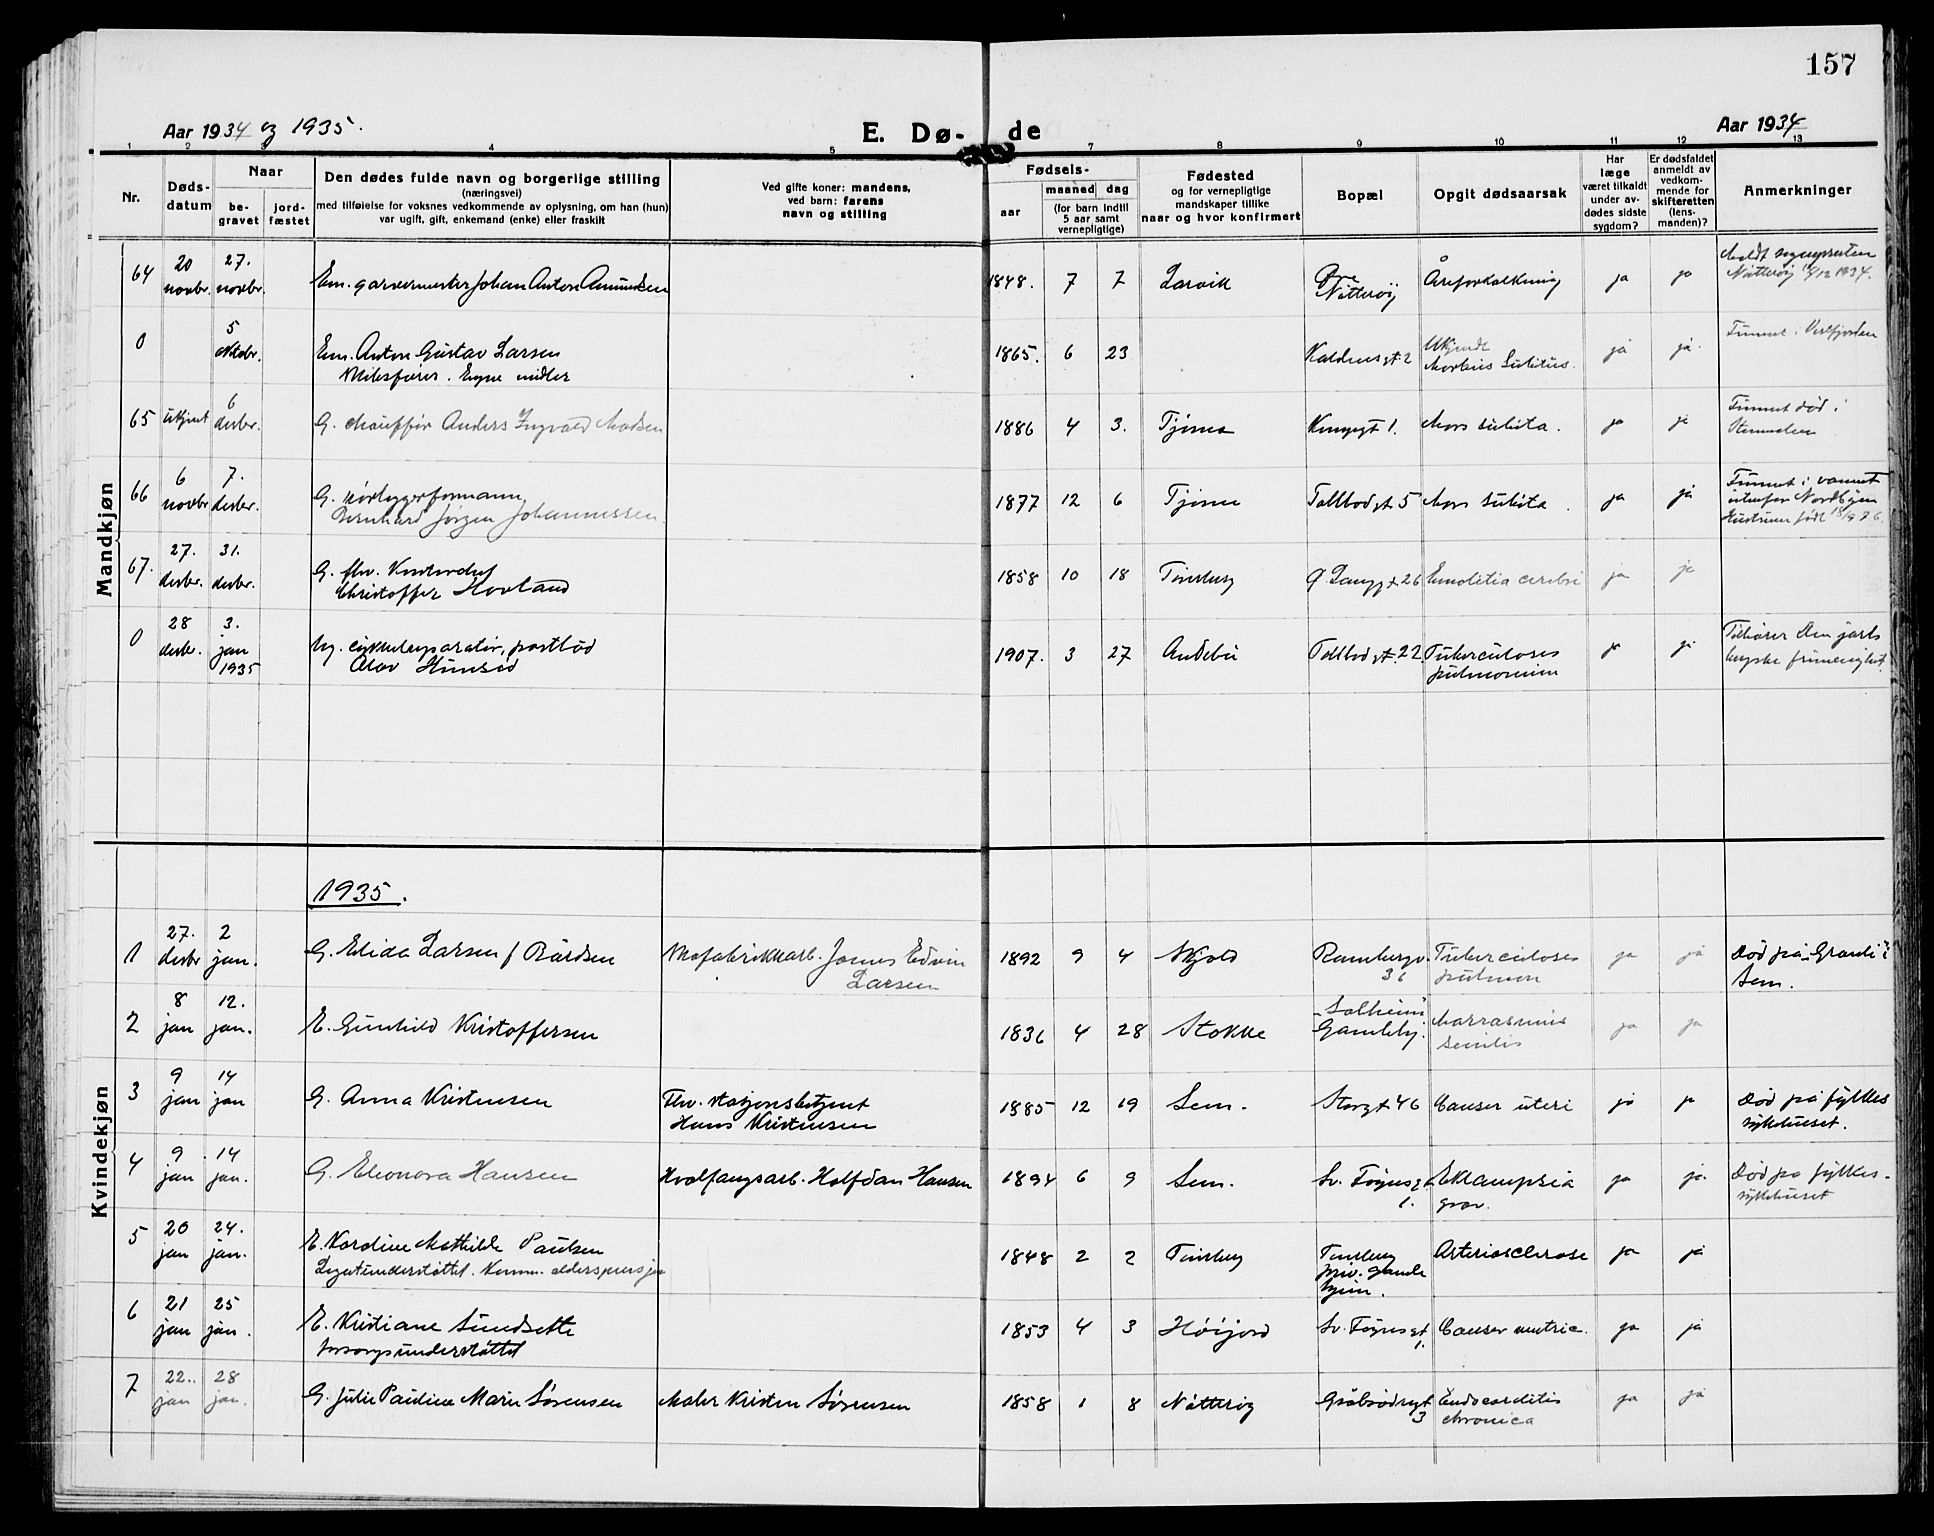 157
Aar 1934 og 1935.
E. Dø- de
Aar 1934
1 2 3 4 5 7 8 9 10 11 12 13
Nr.
Døds-
datum
Naar
be-
gravet
jord-
fæstet
Den dødes fulde navn og borgerlige stilling
(næringsvei)
med tilføielse for voksnes vedkommende av oplysning, om han (hun)
var ugift, gift, enkemand (enke) eller fraskilt
Ved gifte koner: mandens,
ved barn: farens
navn og stilling
Fødsels-
aar
maaned
dag
(for barn indtil
5 aar samt
vernepligtige)
Fødested
og for vernepligtige
mandskaper tillike
naar og hvor konfirmert
Bopæl
Opgit dødsaarsak
Har
læge
været tilkaldt
under av-
dødes sidste
sygdom?
Er dødsfaldet
anmeldt av
vedkom-
mende for
skifteretten
(lens-
manden)?
Anmerkninger
Mandkjøn
64 20 novbr. 27. novbr. Em. garvermester Johan Anton Amundsen 1848. 7 7 Larvik Øre Nøtterøy Åreforkalkning ja ja Meldt sognepresten
Nøtterøy 1934.
0 5 oktobr. Em. Anton Gustav Larsen
Egne midler 1865. 6 23 2 Ukjendt
Morbus Subitus. ja ja. Funnet i Vestfjorden
65 ukjent 6 desbr. G. chauffør Anders Ingvald Madsen 1886 4 3. Tjøme Kongegt 1. Mors subita. ja ja Funnet død i
66 6 novbr 7. desbr. G. rørleggerformann
Bernhard Jørgen Johannessen 1877 12 6 Tjøme Tollbodgt 5 Mors subita. ja ja Funnet i vannet
utenfor Nordbyen
Hustruen født
67. 27. desbr. 31. desbr. G. fhv. Kontorchef
Christoffer Hovland 1858 10 18 Tønsberg Ø. Langgt 26 Emolitia cerebri ja ja
0 28 desbr. 3. jan 1935 Ug. cykkelreparatør, postbud
Olav Hunsrød 1907. 3 27 Andebu Tollbodgt. 22 Tuberculoses
pulmonum ja ja Tilhører Den jarls
bergske frimenighet
Kvindekjøn
1935.
1 27. desbr 2 jan. G. Elida Larsen f Bårdsen Skofabrikkarb. James Edvin
Larsen 1892 9 4 Skjold Rambergv.
36 Tuberculoses
pulmon ja ja Død på „Granli"
Sem.
2 8 jan 12. jan. E. Gunhild Kristoffersen 1836 4 28 Stokke Solheim
Gamlehj. Marrasmus
senilis ja ja
3 9 jan 14 jan G. Anna Kristensen Fhv. stasjonsbetjent
Hans Kristensen 1885 12 19 Sem. Storgt 46 Canser uteri ja ja Død på fylkes
sykehuset.
4 9 jan 14 jan. G. Eleonora Hansen Hvalfangsarb. Halfdan Hansen 1894 6 9 Sem. Sv. Føynsgt
1. Eklampsia
grav. ja ja. Død på fylkes-
sykehuset
5 20 jan 24. jan. E. Karoline Mathilde Paulsen
Legatunderstøttet. Komm. alderspensjon 1848 2 2 Tønsberg Tønsberg
priv. gamle
hjem. Arteriosclerose ja ja
6 21 jan 25 jan. E. Kristiane Sundsette
forsorgsunderstøttet 1853 4 3 Høijord Sv. Føynsgt
1. Canser ventric. ja ja
7 22. jan 28 jan. G. Julie Pauline Marie Sørensen Maler Kristen Sørensen 1858 1 8 Nøtterøy Gråbrødregt
3 Endocarditis
chronica ja ja